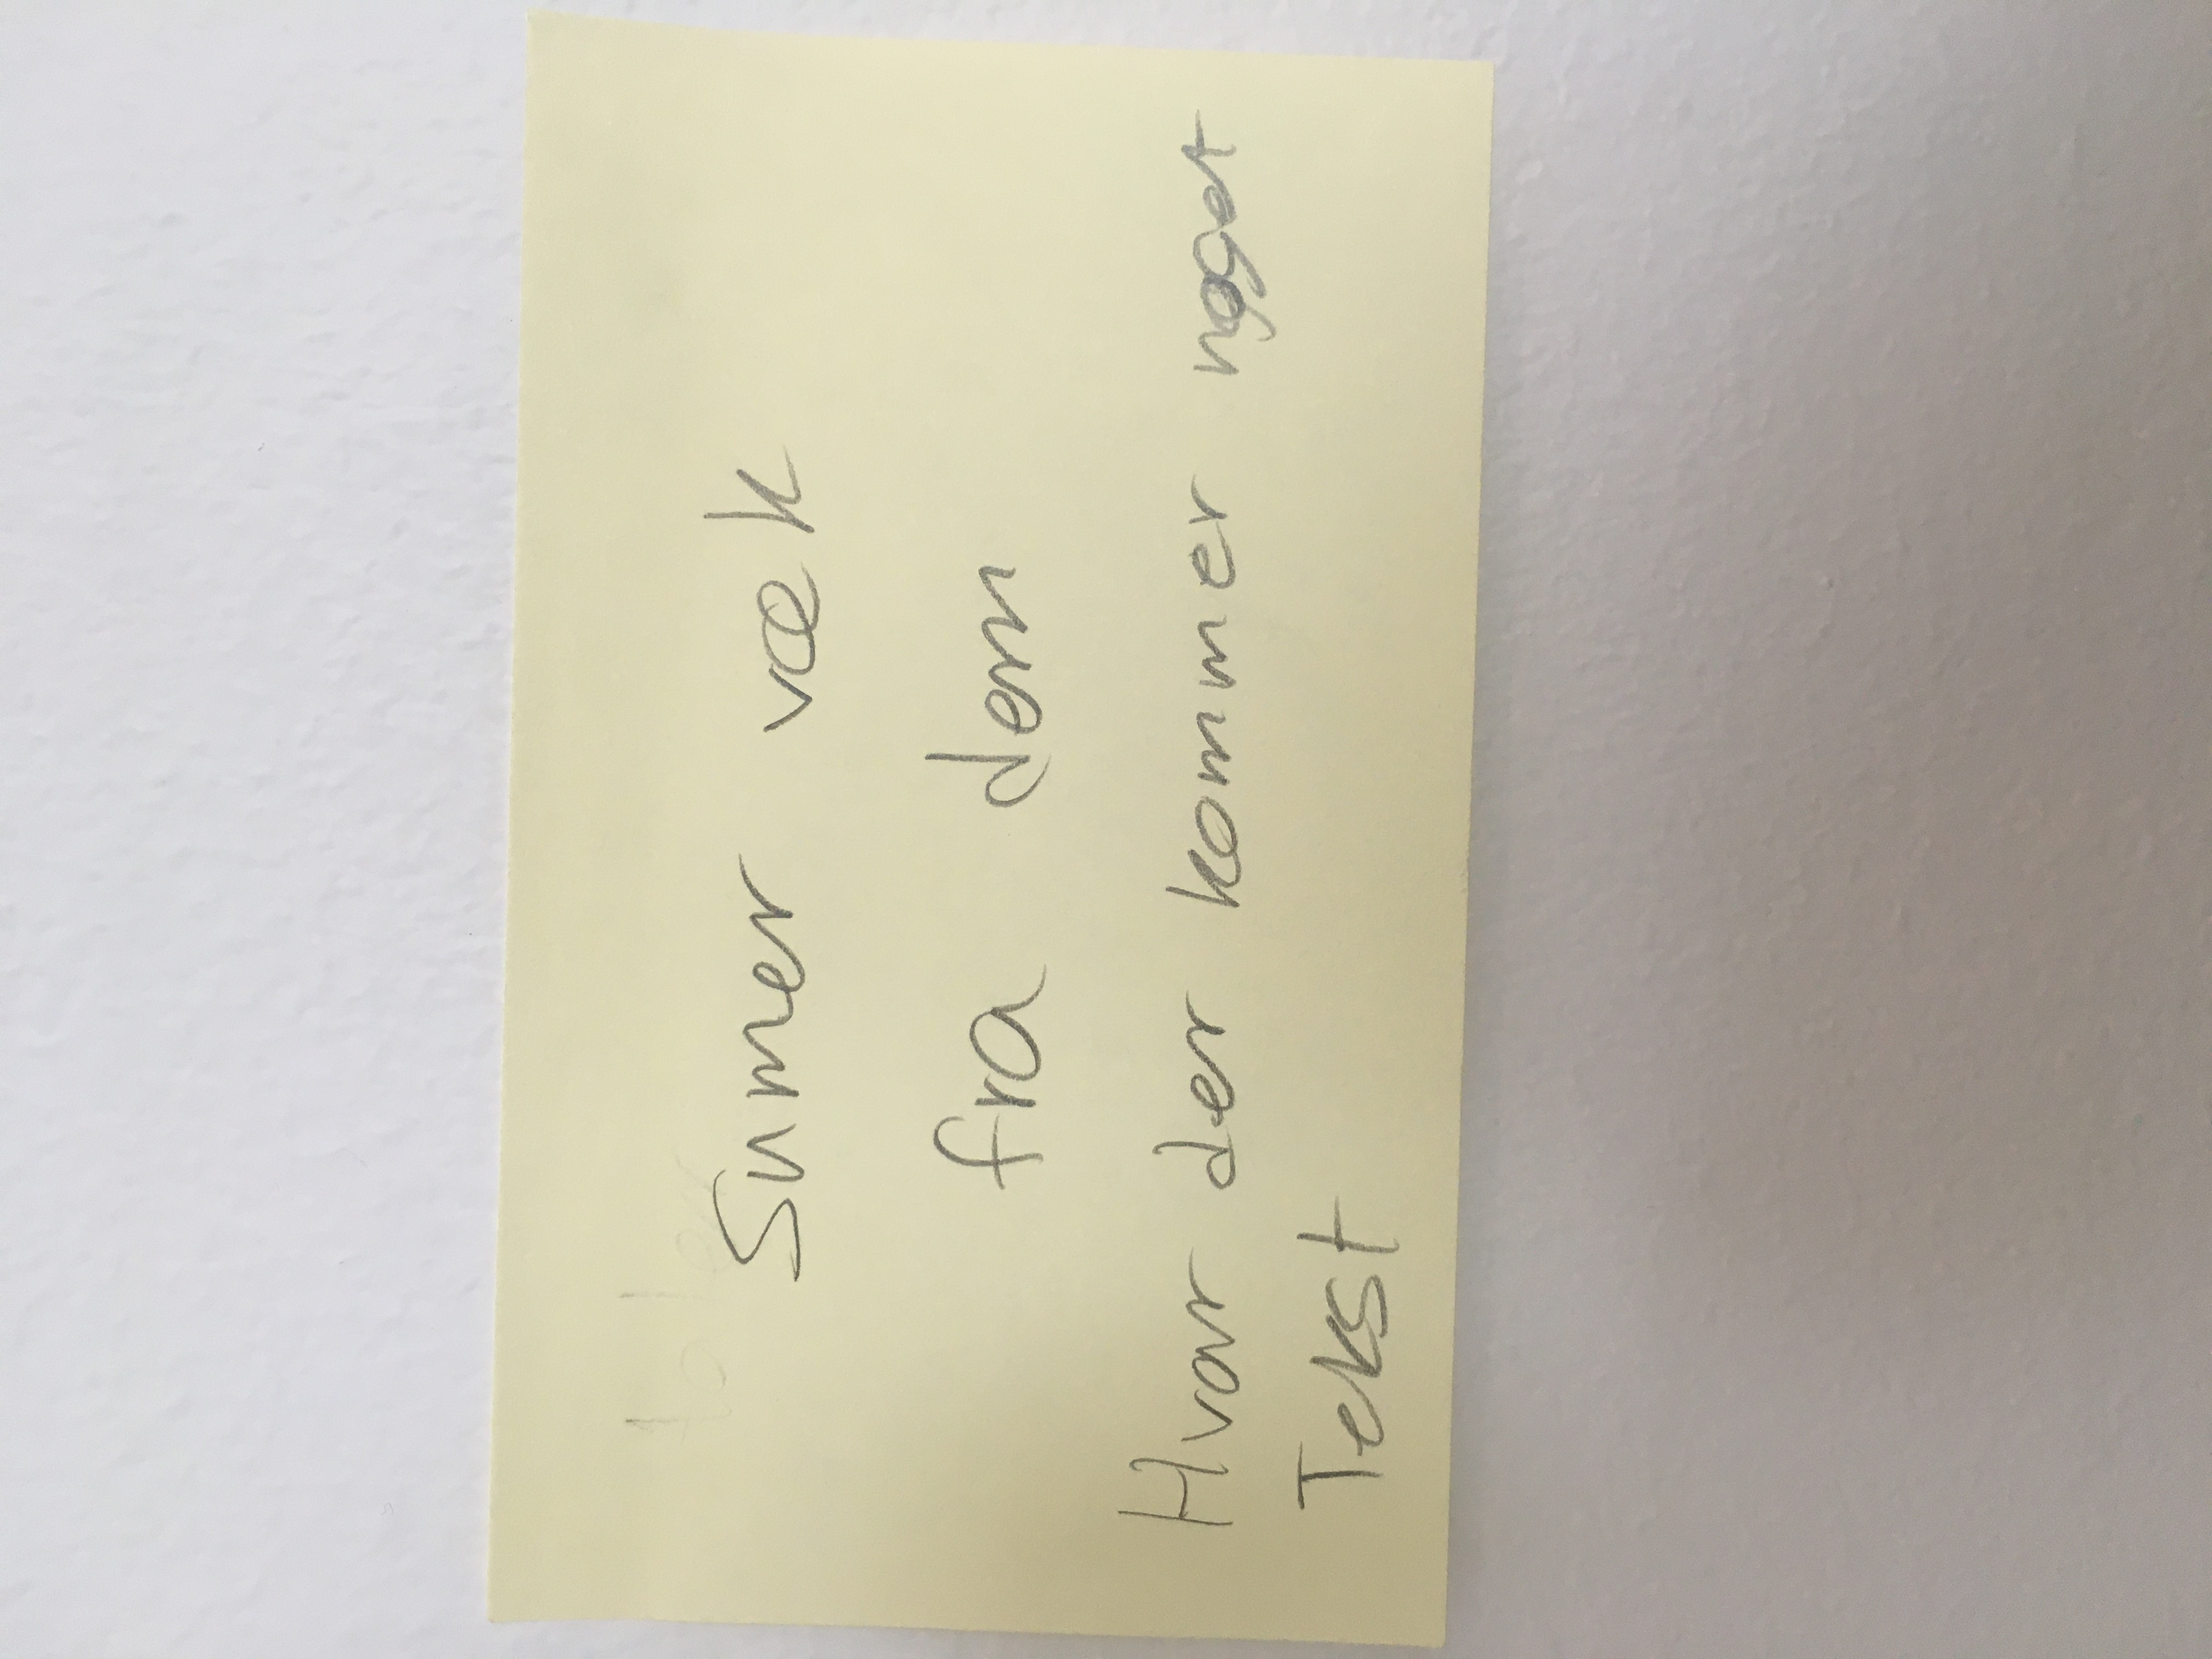 Sumer væk
fra dem
Hvor der kommer noget
Tekst